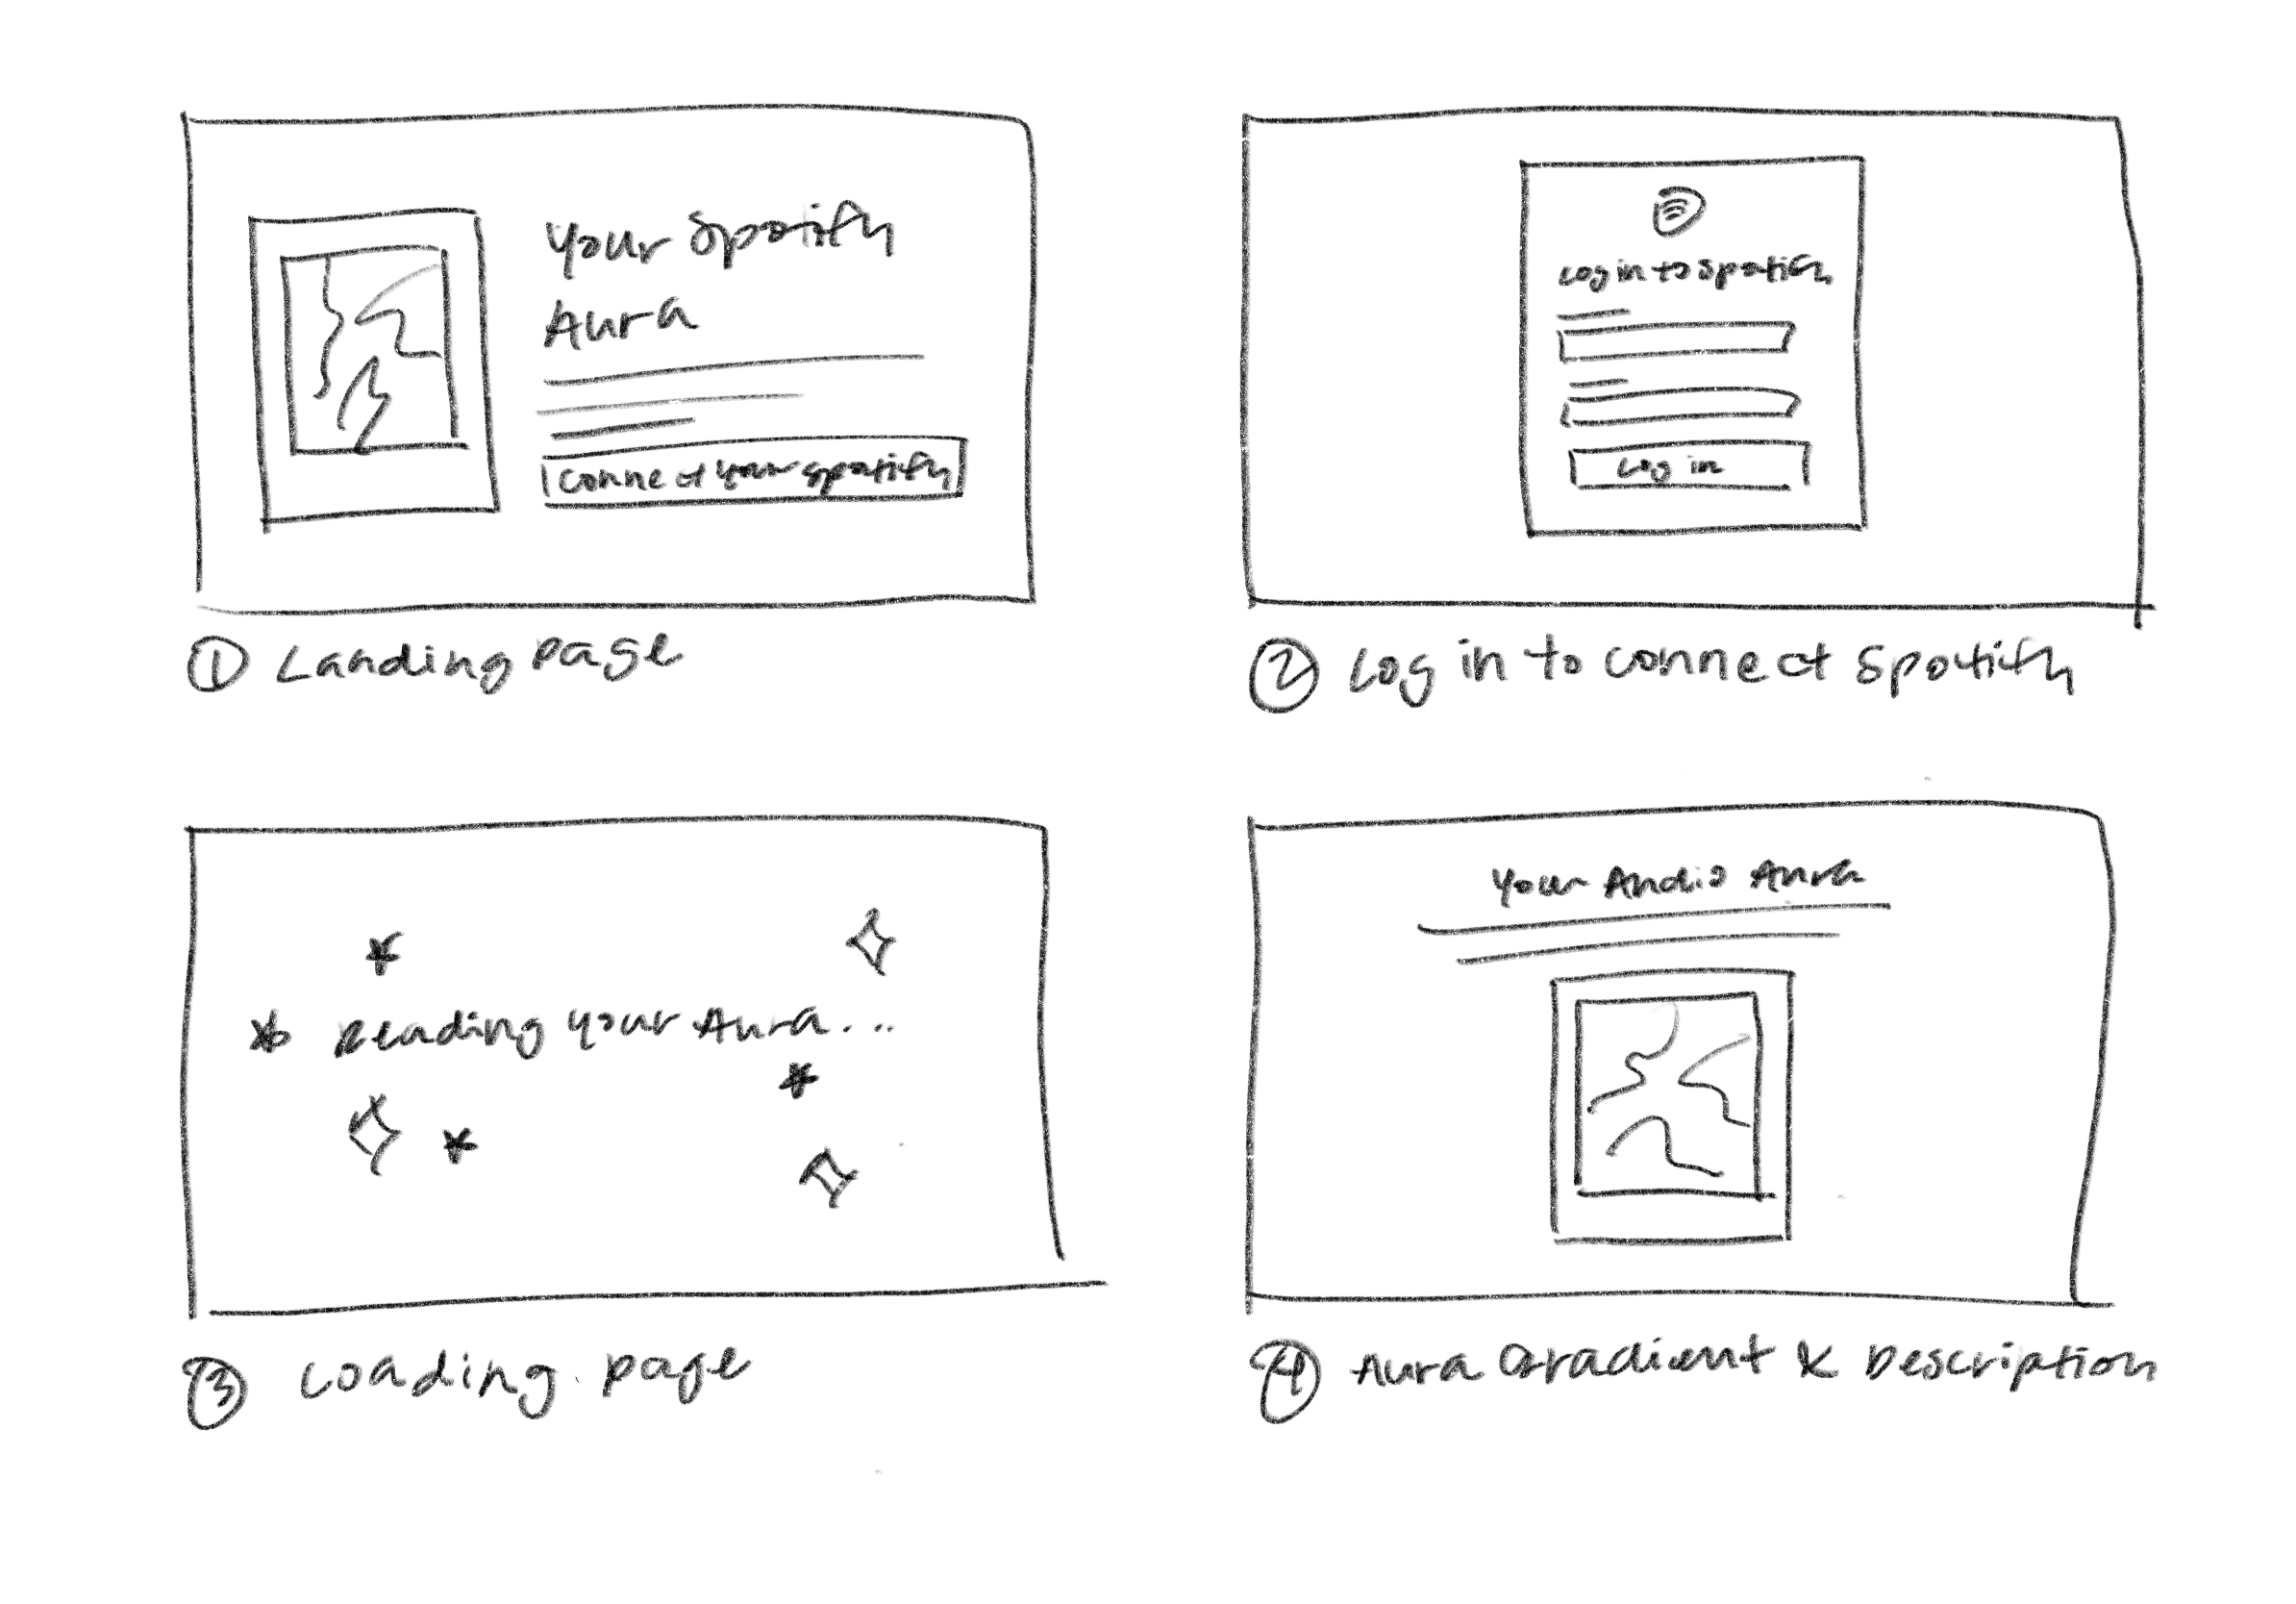 Your Spotify
Aura
Connect your spotify
① Landing page
Log in to spotify
Log in
② Log in to connect spotify
Reading your Aura...
③ Loading page
Your Audio Aura
④ Aura Gradient & Description